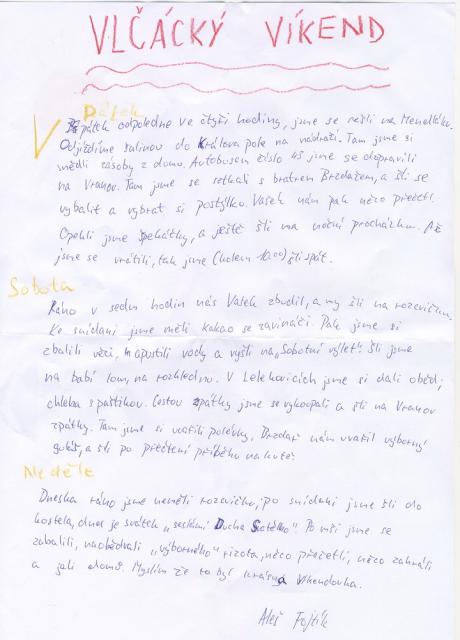 VLČÁCKÝ VÍKEND
Pátek
V pátek odpoledne ve čtyři hodiny, jsme se sešli na Mendláku.
Odjíždíme šalinou do Králova pole na nádraží. Tam jsme si
snědli zásoby z domo. Autobusem číslo 43 jsme se dopravili
na Vranov. Tam jsme se setkali s bratrem Brzdařem, a šli se
vybalit a vybrat si postýlku. Vašek nám pak něco přečetl.
Opekli jsme špekáčky, a ještě šli na noční procházku. Až
jsme se vrátili, tak jsme (kolem 10.00) šli spát.
Sobota
Ráno v sedm hodin nás Vašek zbudil, a my šli na rozcvičku.
Ke snídani jsme měli kakao se zavináči. Pak jsme si
zbalili věci, napustili vody a vyšli na „Sobotní výlet". Šli jsme
na babí lom, na rozhlednu. V Lelekovicích jsme si dali oběd;
chleba s paštikou. Cestou zpátky jsme se vykoupali a šli na Vranov
zpátky. Tam jsme si uvařili polévky, Brzdař nám uvařil výborný
guláš, a šli po přečtení příběhu na kutě.
Neděle
Dneska ráno jsme neměli rozcvičku, po snídani jsme šli do
kostela, dnes je svátek „seslání Ducha Svatého". Po mši jsme se
zabalili, naobědvali „výborného" rizota, něco přečetli, něco zahráli
a jeli domů. Myslím že to byl krásná víkendovka.
Aleš Fojtík